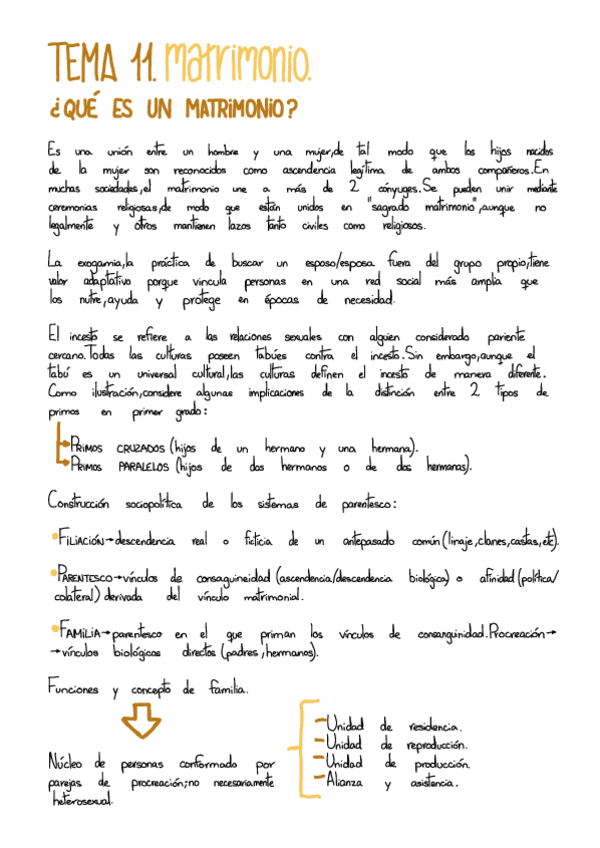 TEMA 11. Matrimonio.
¿QUÉ ES UN MATRIMONIO?
Es una unión entre un hombre y una mujer,de tal modo que los hijos nacidos
de la mujer son reconocidos como ascendencia legítima de ambos compañeros.En
muchas sociedades,el matrimonio une a más de 2 cónyuges.Se pueden unir mediante
ceremonias religiosas,de modo que están unidos en "sagrado matrimonio",aunque no
legalmente y otros mantienen lazos tanto civiles como religiosos.
La exogamia,la práctica de buscar un esposo/esposa fuera del grupo propio,tiene
valor adaptativo porque vincula personas en una red social más amplia que
los nutre,ayuda y protege en épocas de necesidad.
El incesto se refiere a las relaciones sexuales con alguien considerado pariente
cercano.Todas las culturas poseen tabúes contra el incesto.Sin embargo,aunque el
tabú es un universal cultural,las culturas definen el incesto de manera diferente.
Como ilustración,considere algunas implicaciones de la distinción entre 2 tipos de
primos en primer grado:
PRIMOS CRUZADOS (hijos de un hermano y una hermana).
PRIMOS PARALELOS (hijos de dos hermanos o de dos hermanas).
Construcción sociopolítica de los sistemas de parentesco:
•FILIACIÓN→descendencia real o ficticia de un antepasado común(linaje,clanes,castas,etc).
•PARENTESCO→vínculos de consaguineidad (ascendencia/descendencia biológica) o afinidad(política/
colateral) derivada del vínculo matrimonial.
•FAMILIA→parentesco en el que priman los vínculos de consanguinidad.Procreación→
→vínculos biológicos directos (padres,hermanos).
Funciones y concepto de familia.
Núcleo de personas conformado por
parejas de procreación;no necesariamente
heterosexual.
-Unidad de residencia.
-Unidad de reproducción.
-Unidad de producción.
-Alianza y asistencia.